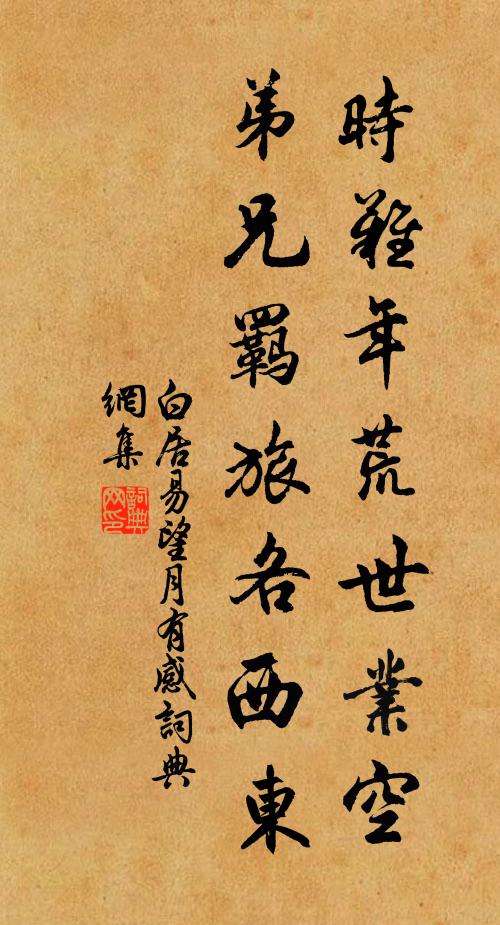 時難年荒世業空
弟兄羈旅各西東
白居易望月有感詞典
網集
詞典网印